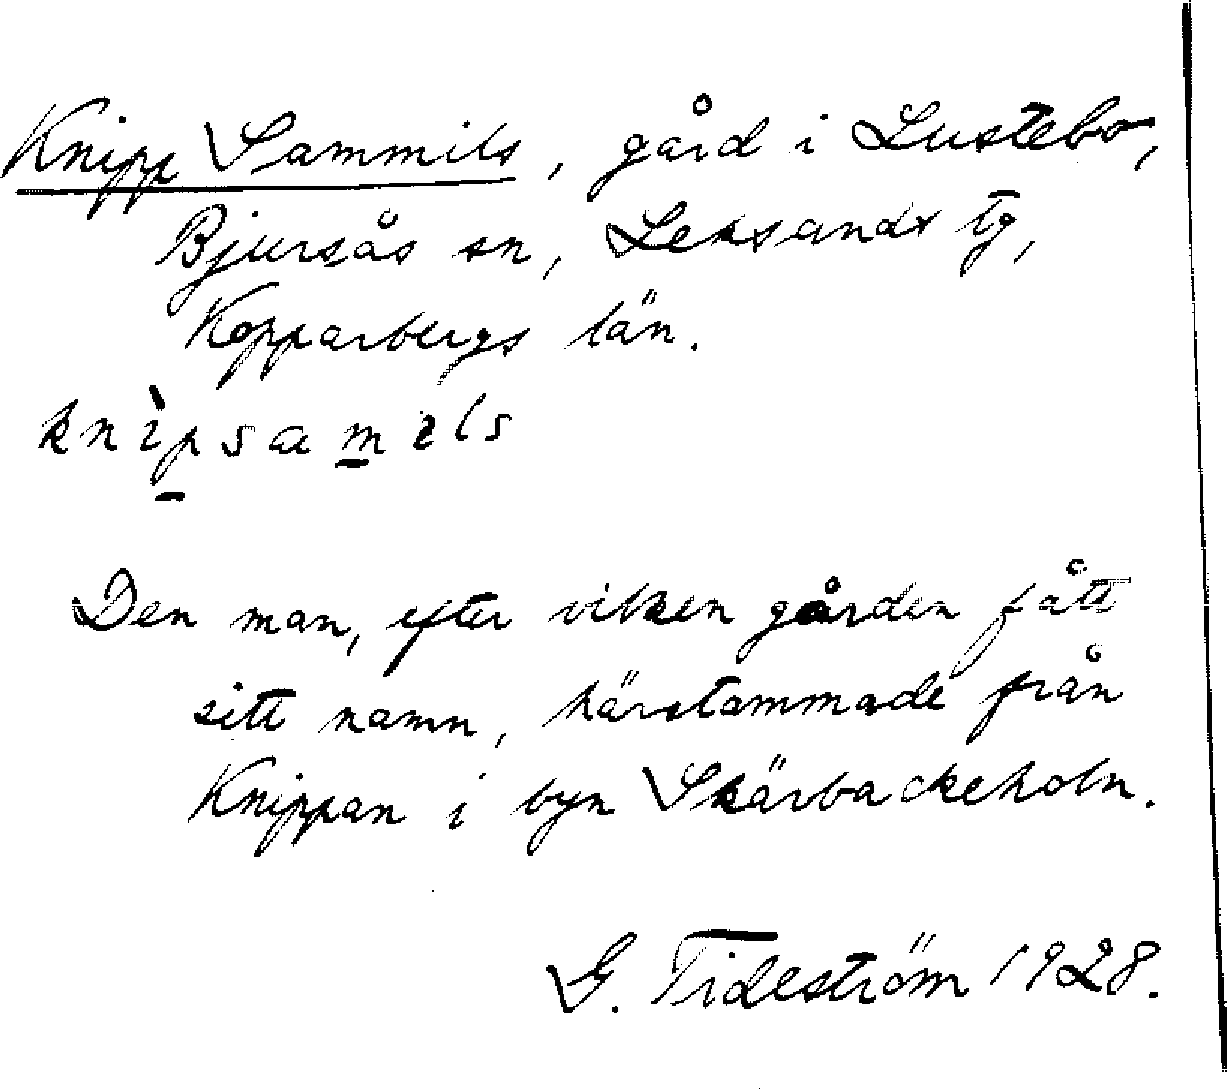 Knipp Sammils, gård i Lustebo,
Bjursås sn, Leksands tg,
Kopparbergs län.
knìpsamils
Den man, efter vilken gården fått
sitt namn, härstammade från
Knippan i byn Skärbackeholn.
G. Tideström 1928.